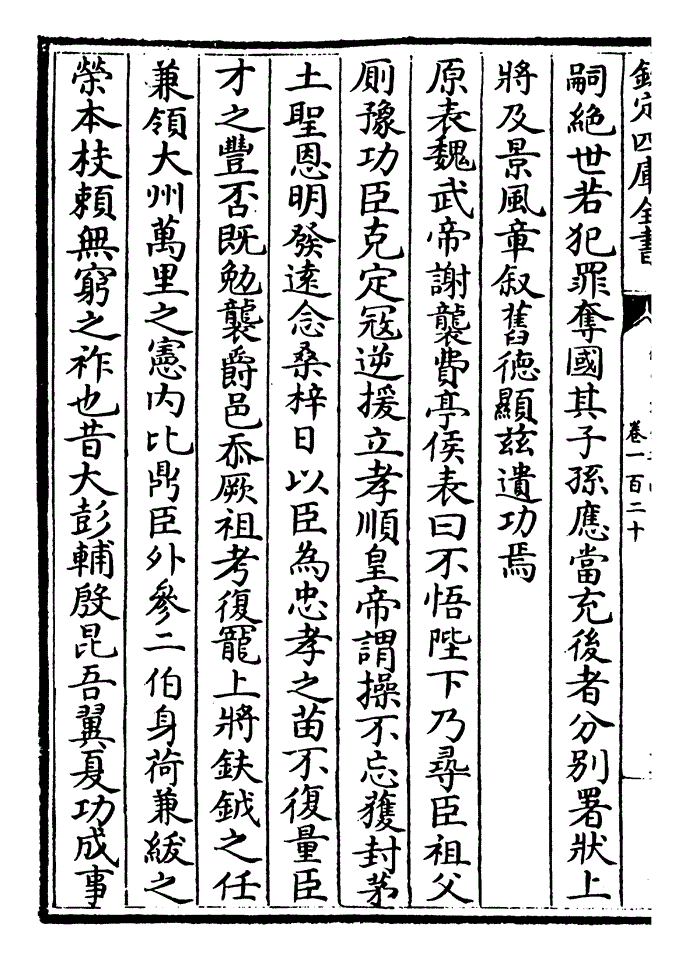 欽定四庫全書
卷一百二十
嗣絶世若犯罪奪國其子孫應當充後者分别署狀上
將及景風章叙舊德顯兹遺功焉
原表魏武帝謝襲費亭侯表曰不悟陛下乃尋臣祖父
厠豫功臣克定冦逆援立孝順皇帝謂操不忘獲封茅
土聖恩明發遠念桑梓日以臣為忠孝之苗不復量臣
才之豐否既勉襲爵邑忝厥祖考復寵上將鈇鉞之任
兼領大州萬里之憲内比鼎臣外參二伯身荷兼紱之
榮本枝頼無窮之祚也昔大彭輔殷昆吾翼夏功成事